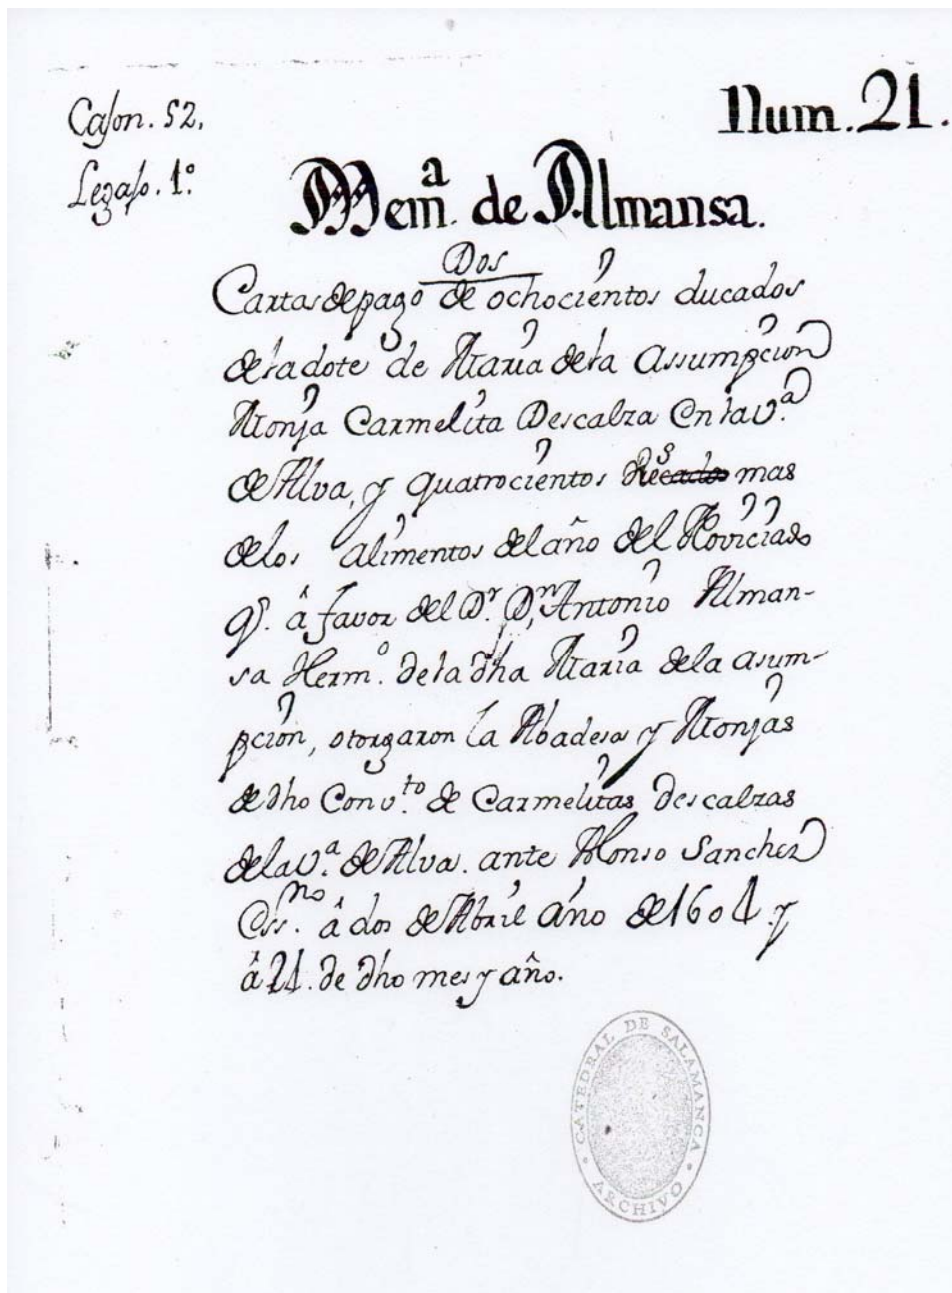 Cajon. 52.
Legajo. 1.º
Num. 21.
Mem.ª de Almansa.
Dos
Cartas de pago de ochocientos ducados
de la dote de Maria de la Assumpcion
Monja Carmelita Descalza En la V.ª
de Alva, y quatrocientos R.s mas
de los alimentos del año del Noviciado
q.e â favor del D.r D.n Antonio Alman-
sa Herm.º de la dha Maria de la asum-
pcion, otorgaron la Abadesa y Monjas
de dho Conv.to de Carmelitas Descalzas
de la V.ª de Alva. ante Alonso Sanchez
Ess.no â dos de Abril año de 1604. y
â 21. de dho mes y año.
CATEDRAL DE SALAMANCA
ARCHIVO